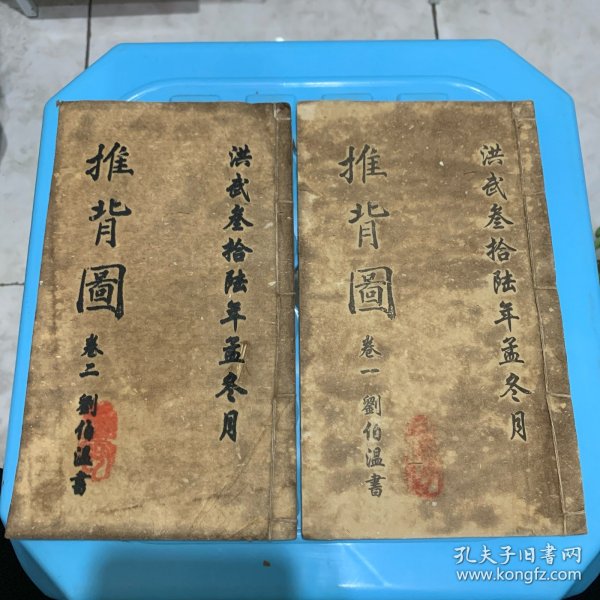 洪武叁拾陆年孟冬月
推背圖
卷二 劉伯温書
洪武叁拾陆年孟冬月
推背圖
卷一 劉伯温書
孔夫子旧书网
www.kongfz.com